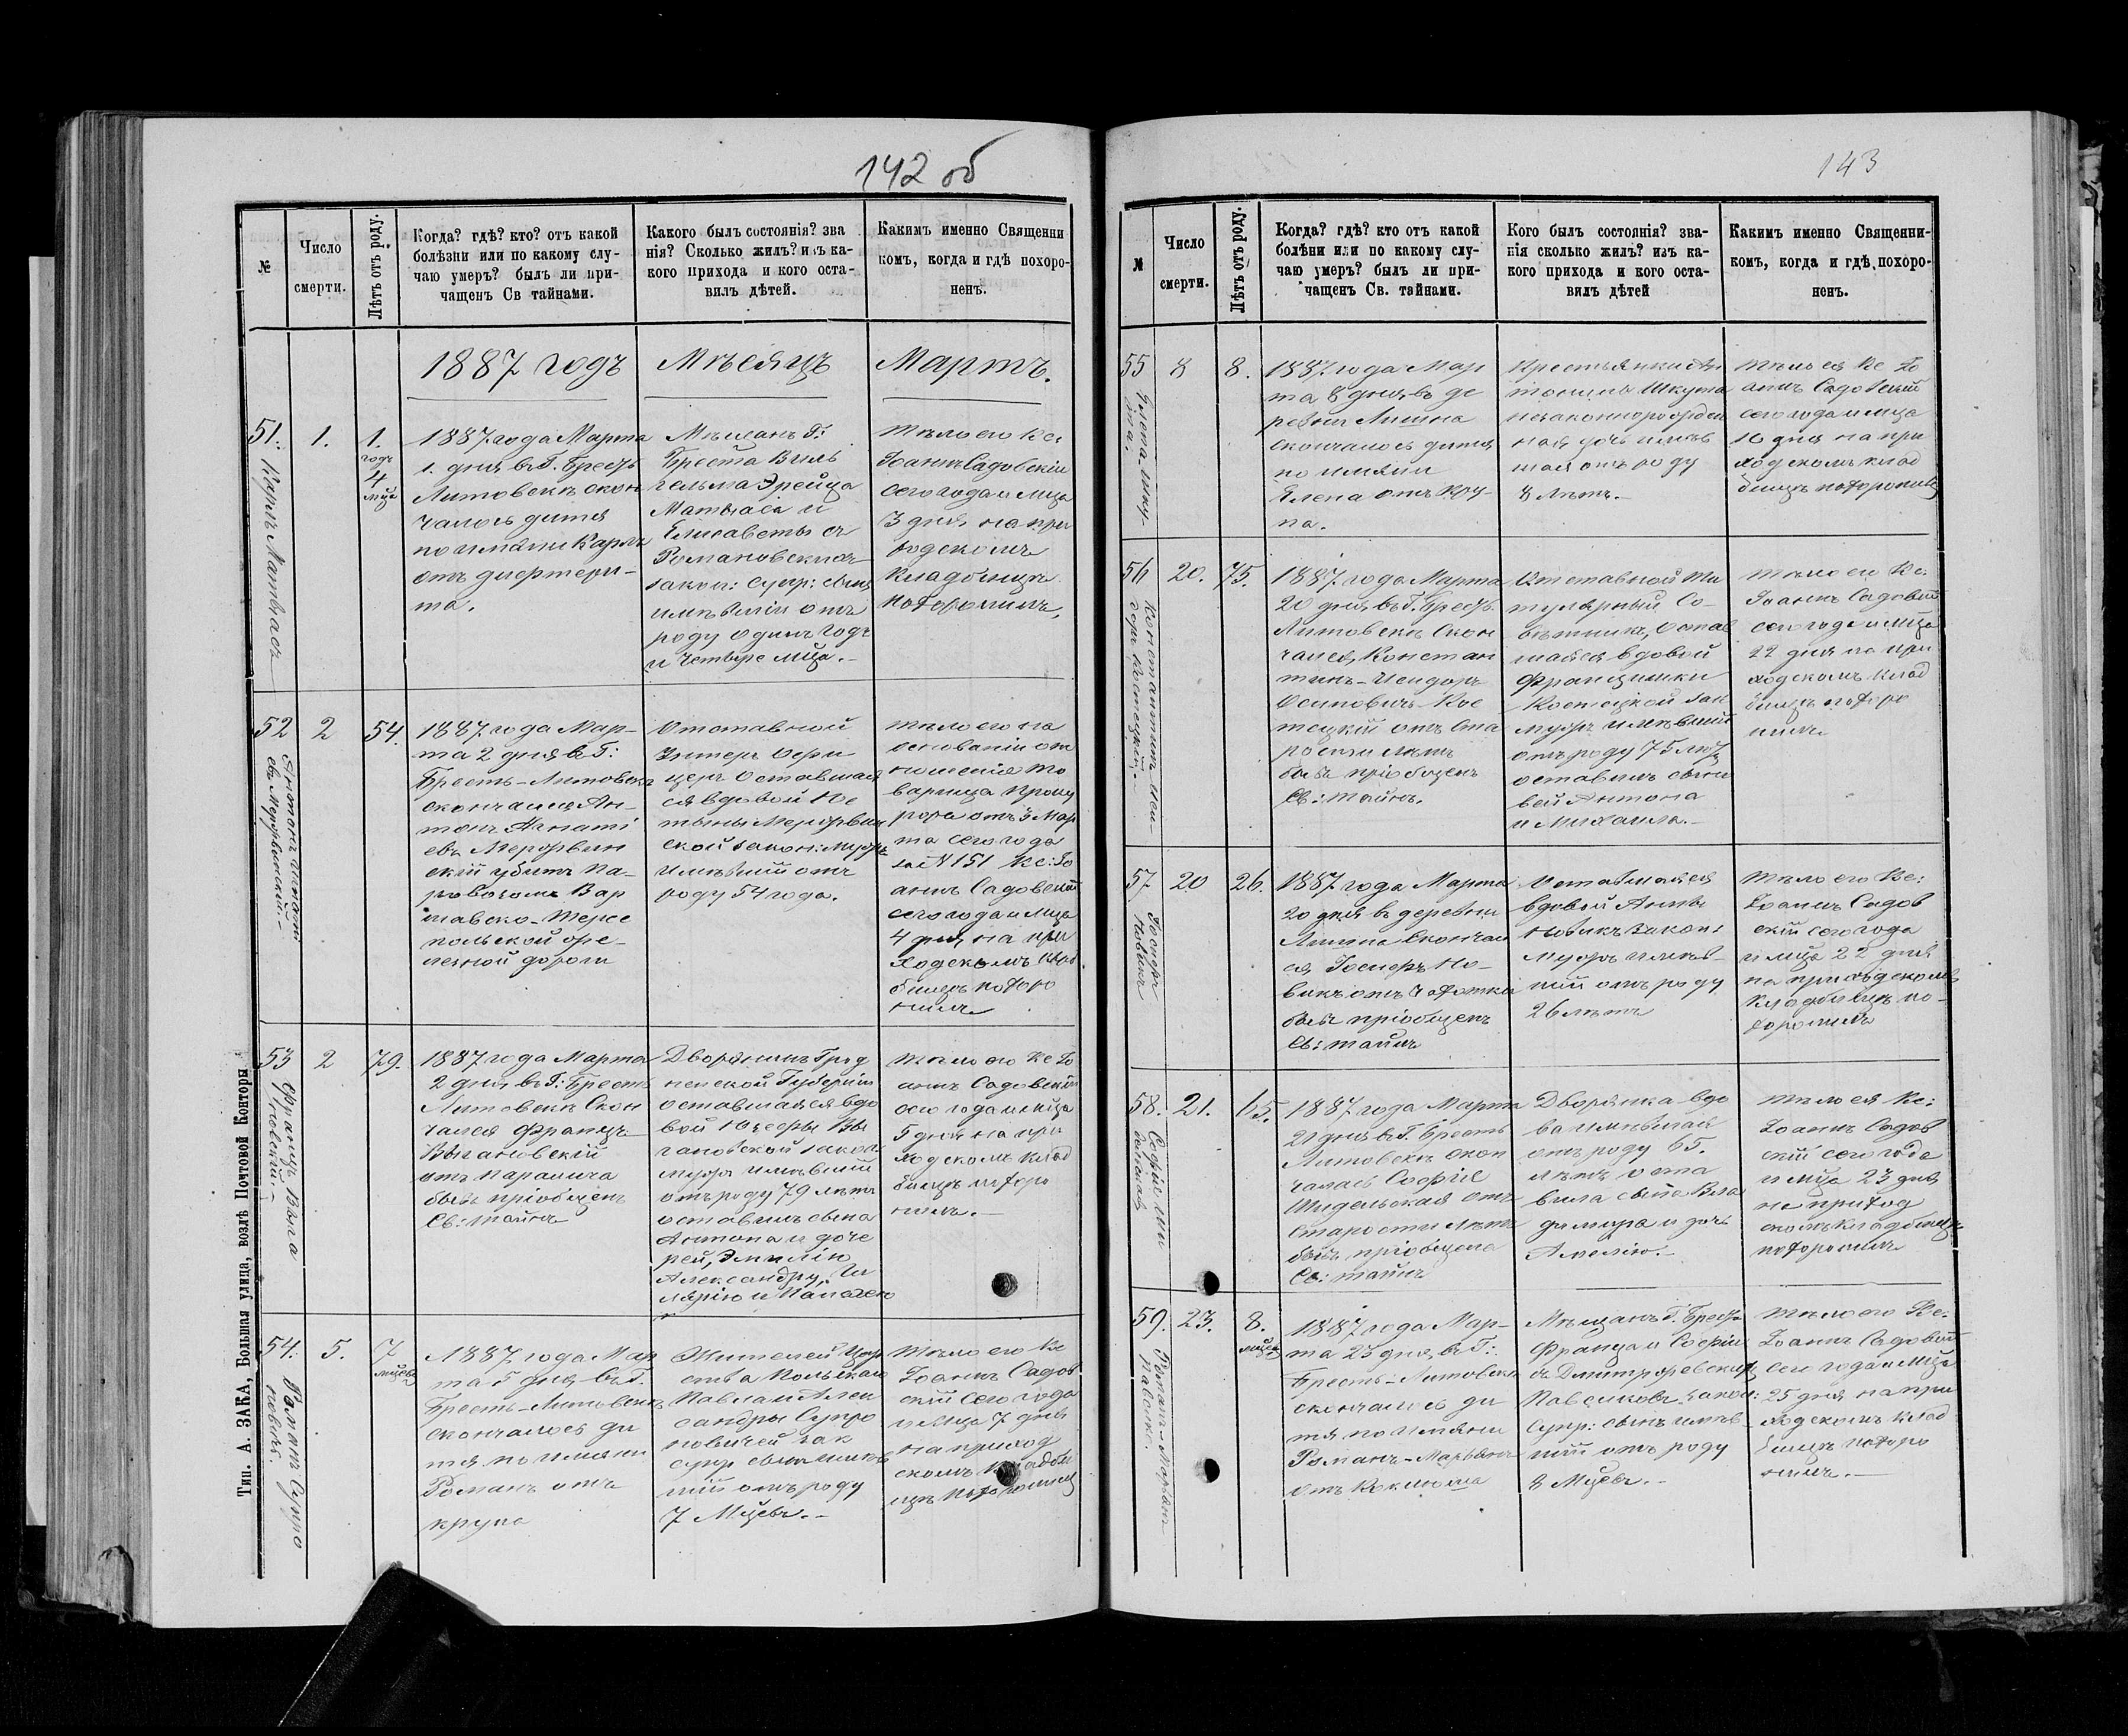 142 об
№
Число
смерти.
Лѣтъ отъ роду.
Когда? гдѣ? кто? отъ какой
болѣзни или по какому слу-
чаю умеръ? былъ ли при-
чащенъ Св тайнами.
Какого былъ состоянія? зва
нія? Сколько жилъ? изъ ка-
кого прихода и кого оста-
вилъ дѣтей.
Какимъ именно Священни
комъ, когда и гдѣ похоро-
ненъ.
1887 годъ Мѣсяцъ Мартъ.
51.
Карлъ Матыасъ
1.
1.
годъ
4
мца
1887 года Марта
1. дня въ Г. Брестъ
Литовскѣ скон
чалось дитя
по имени Карлъ
отъ дифтери-
та.
Мѣщанъ Г:
Бреста Виль
гельма
Матыаса и
Елисаветы съ
Романовскихъ
закон: супр: сынъ
имѣвшій отъ
роду одинъ годъ
и четыре мца.-
Тѣло его Кс:
Іоаннъ Садовскій
сего года и мца
3 дня на при
ходскомъ
кладбищѣ
похоронилъ.
52
Антонъ Игнаті
евъ
2
54.
1887 года Мар-
та 2 дня въ Г:
Брестъ-Литовскѣ
скончался Ан-
тонъ Игнаті
евъ
скій убитъ па-
ровозомъ Вар
шавско-Терес
польской же-
лезной дороги
Отставной
Унтеръ Офи
церъ оставшая
ся вдовой
ской закон: мужъ
имѣвшій отъ
роду 54 года.
Тѣло его на
основаніи от
ношенія то
варища проку
рора отъ 3 Мар
та сего года
за № 151 Кс: Іо
аннъ Садовскій
сего года и мца
4 дня на при
ходскомъ клад
бищѣ похоро
нилъ
53
Францъ Выга
новскій.-
2
79.
1887 года Марта
2 дня въ Г: Брестъ
Литовскѣ Скон
чался Францъ
Выгановскій
отъ паралича
бывъ пріобщенъ
Св: тайнъ
Дворянинъ Грод
ненской Губерніи
оставшаяся вдо
вой Юзефы Вы
гановской закон.
мужъ имѣвшій
отъ роду 79 лѣтъ
оставилъ сына
Антона и доче
рей, Эмилію
Александру,
Тѣло его Кс Іо
аннъ Садовскій
сего года и мца
5 дня на при
ходскомъ клад
бищѣ похоро
нилъ.-
54.
Романъ Супро
новичъ.
5.
7
мцевъ
1887 года Мар
та 5 дня въ Г.
Брестъ-Литовскѣ
скончалось ди
тя по имени
Романъ отъ
крупа
Жителей Цар
ства Польскаго
Павла и Алек
сандры Супро
новичей зак
супр сынъ имѣв
шій отъ роду
7 Мцевъ.-
Тѣло его Кс
Іоаннъ Садов
скій сего года
и мца 7 дня
на приход
скомъ кладби
щѣ похоронилъ
Тип. А. ЗАКА, Большая улица, возлѣ Почтовой Конторы
143
№
Число
смерти.
Лѣтъ отъ роду.
Когда? гдѣ? кто отъ какой
болѣзни или по какому слу-
чаю умеръ? былъ ли при-
чащенъ Св. тайнами.
Кого былъ состоянія? зва-
нія сколько жилъ? изъ ка-
кого прихода и кого оста-
вилъ дѣтей
Какимъ именно Священни-
комъ, когда и гдѣ похоро-
ненъ.
55
Елена Шку-
та.
8
8.
1887 года Мар
та 8 дня, въ де
ревни Лышна
скончалось дитя
по имени
Елена отъ кру-
па.
Крестьянки Ан
тонины Шкута
незаконнорожден
ная дочь имѣв
шая отъ роду
8 лѣтъ.-
Тѣло ея Кс Іо
аннъ Садовскій
сего года и мца
10 дня на при
ходскомъ клад
бищѣ похоронилъ
56
Константинъ Иси-
доръ Костецкій.-
20.
75.
1887 года Марта
20 дня въ Г. Брестъ
Литовскѣ Скон
чался, Констан
тинъ-Исидоръ
Осиповичъ Кос
тецкій отъ ста
рости лѣтъ
бывъ пріобщенъ
Св: тайнъ.
Отставной Ти
тулярный Со-
вѣтникъ, остав
шаяся вдовой
Францишки
Костецкой зак
мужъ имѣвшій
отъ роду 75 лѣтъ
оставилъ сыно
вей Антона
и Михаила.-
Тѣло его Кс.
Іоаннъ Садовскій
сего года и мца
22 дня на при
ходскомъ клад
бищѣ похоро
нилъ
57
Іосифъ
Новикъ
20
26.
1887 года Марта
20 дня въ деревни
Лышна скончал
ся Іосифъ Но-
викъ отъ чахотки
бывъ пріобщенъ
Св: тайнъ
Оставшаяся
вдовой Анны
Новикъ закон:
мужъ имѣв-
шій отъ роду
26 лѣтъ
Тѣло его Кс:
Іоаннъ Садов
скій сего года
и мца 22 дня
на приходскомъ
кладбищѣ по-
хоронилъ
58.
21.
65.
1887 года Марта
21 дня въ Г. Брестъ
Литовскѣ скон
чалась Софія
Шидельская отъ
старости лѣтъ
бывъ пріобщена
Св: тайнъ
Дворянка вдо
ва имѣвшая
отъ роду 65.
лѣтъ оста
вила сына Вла
димира и дочь
Амелію.-
Тѣло ея Кс:
Іоаннъ Садов
скій сего года
и мца 23 дня
на приход
скомъ кладбищѣ
похоронилъ
59.
Романъ-Марьянъ
23.
8.
мцевъ
1887 года Мар-
та 23 дня, въ Г:
Брестъ-Литовскѣ
скончалось ди
тя по имени
Романъ-Марьянъ
отъ коклюша
Мѣщанъ Г. Бреста
Франца и Софіи
съ Дмитржевскихъ
закон:
супр: сынъ имѣв-
шій отъ роду
8 Мцевъ.-
Тѣло его Кс:
Іоаннъ Садовскій
сего года и мца
25 дня на при
ходскомъ клад
бищѣ похоро
нилъ.-